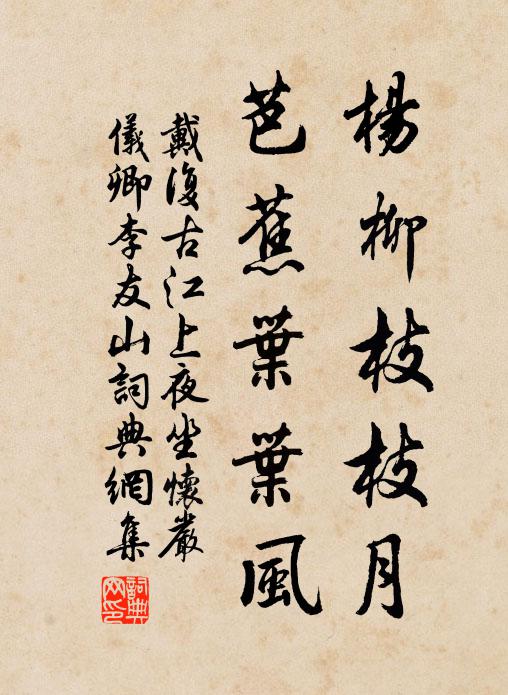 楊柳枝枝月
芭蕉葉葉風
戴復古江上夜坐懷嚴
儀卿李友山詞典網集
詞典
网印